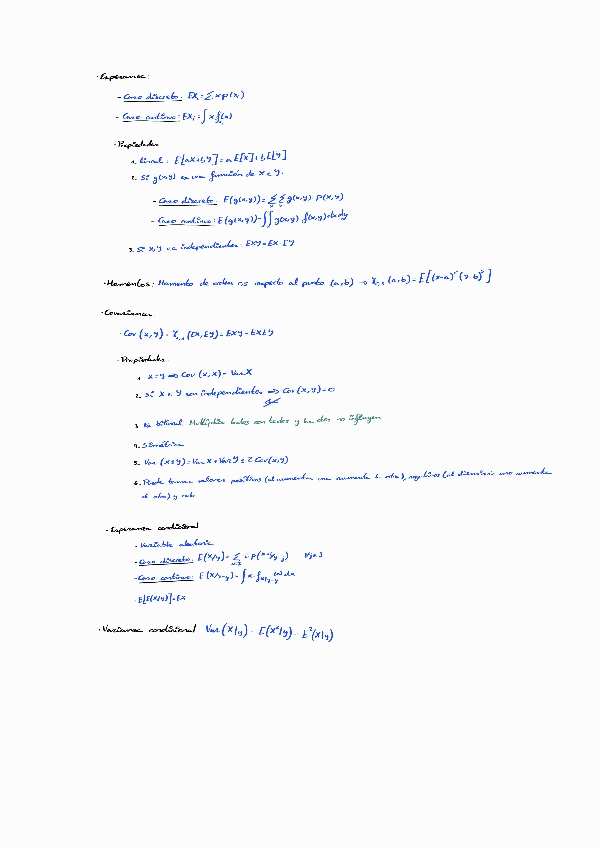 · Esperanza:
- Caso discreto: EXᵢ = ∑ x p(xᵢ)
- Caso continuo: EXᵢ = ∫ x f(x)
· Propiedades
1. Lineal: E[aX+bY] = a E[X] + b E[Y]
2. Si g(x,y) es una función de X e Y:
- Caso discreto: E(g(x,y)) = ∑ ∑ g(x,y) · P(x,y)
- Caso continuo: E(g(x,y)) = ∫∫ g(x,y) · f(x,y) dx dy
3. Si X, Y v.a independientes: EXY = EX · EY
· Momentos: Momento de orden r,s respecto al punto (a,b) → γᵣ,ₛ (a,b) = E[(x-a)ʳ (y-b)ˢ]
· Covarianza:
· Cov(x,y) = γ₁,₁ (EX, EY) = EXY - EXEY
· Propiedades
1. X = Y ⇒ Cov(x,x) = VarX
2. Si X e Y son independientes ⇒ Cov(x,y) = 0
3. Es bilineal. Multiplica todos con todos y las ctes no influyen
4. Simétrica
5. Var(X±Y) = VarX + VarY ± 2 Cov(x,y)
6. Puede tomar valores positivos (al aumentar una aumenta la otra), negativos (al disminuir uno aumenta
el otro) y nulo
· Esperanza condicional
- Variable aleatoria
- Caso discreto: E(X/y) = ∑ i · P(x=i/y=j) ∀j∈
- Caso continuo: E(X/y=y) = ∫ x · f x|y=y (x) dx
· E[E(X|Y)] = EX
· Varianza condicional Var(X|y) = E(X²|y) - E²(X|y)